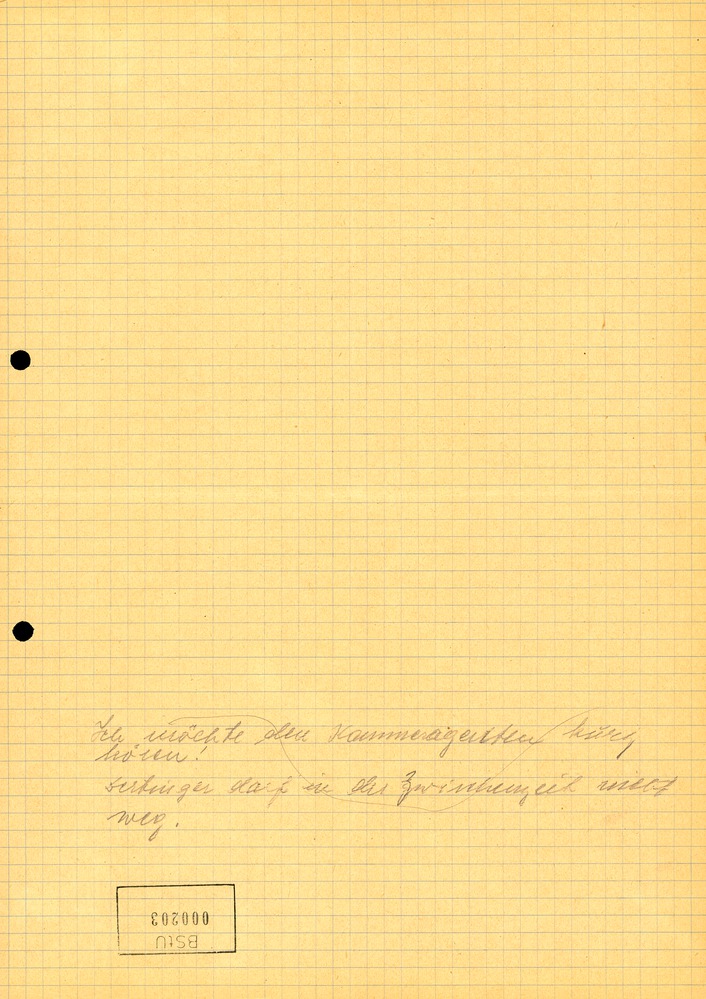 Ich möchte den Kammeragenten kurz
hören!
darf in der Zwischenzeit nicht
weg.
000203
BStU